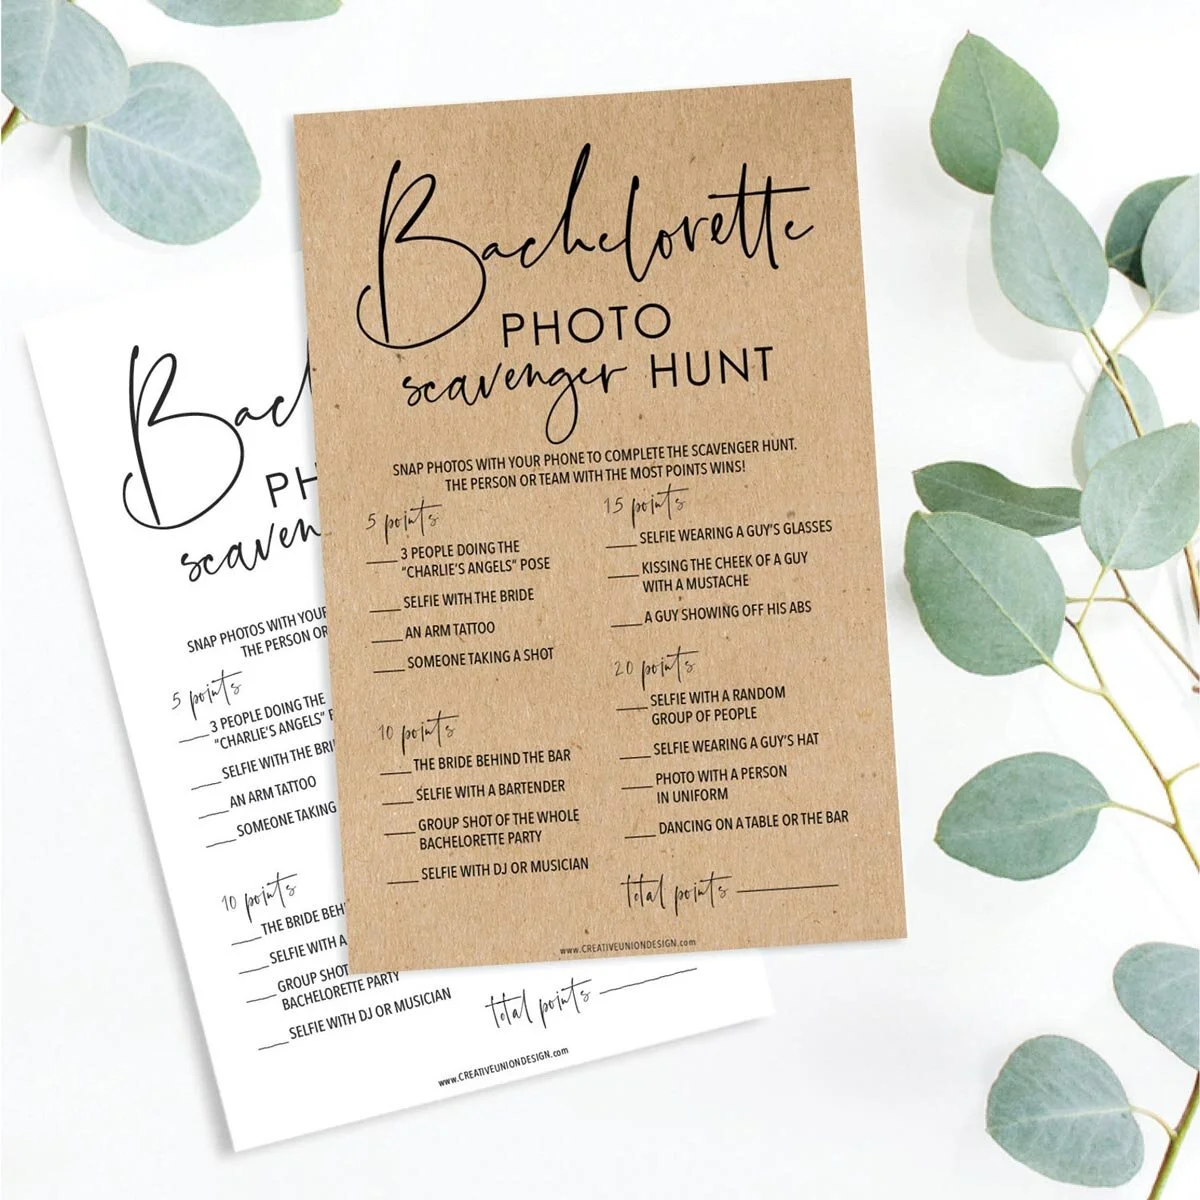 Bachelorette
PHOTO
scavenger HUNT
SNAP PHOTOS WITH YOUR PHONE TO COMPLETE THE SCAVENGER HUNT.
THE PERSON OR TEAM WITH THE MOST POINTS WINS!
5 points
___ 3 PEOPLE DOING THE
"CHARLIE'S ANGELS" POSE
___ SELFIE WITH THE BRIDE
___ AN ARM TATTOO
___ SOMEONE TAKING A SHOT
10 points
___ THE BRIDE BEHIND THE BAR
___ SELFIE WITH A BARTENDER
___ GROUP SHOT OF THE WHOLE
BACHELORETTE PARTY
___ SELFIE WITH DJ OR MUSICIAN
15 points
___ SELFIE WEARING A GUY'S GLASSES
___ KISSING THE CHEEK OF A GUY
WITH A MUSTACHE
___ A GUY SHOWING OFF HIS ABS
20 points
___ SELFIE WITH A RANDOM
GROUP OF PEOPLE
___ SELFIE WEARING A GUY'S HAT
___ PHOTO WITH A PERSON
IN UNIFORM
___ DANCING ON A TABLE OR THE BAR
total points ______
www.CREATIVEUNIONDESIGN.com
Bac
PH
scaven
SNAP PHOTOS WITH YOUR
THE PERSON OR
5 points
___ 3 PEOPLE DOING THE
"CHARLIE'S ANGELS" P
___ SELFIE WITH THE BRI
___ AN ARM TATTOO
___ SOMEONE TAKING
10 points
___ THE BRIDE BEH
___ SELFIE WITH A
___ GROUP SHOT
BACHELORETTE PARTY
___ SELFIE WITH DJ OR MUSICIAN
total points ______
www.CREATIVEUNIONDESIGN.com